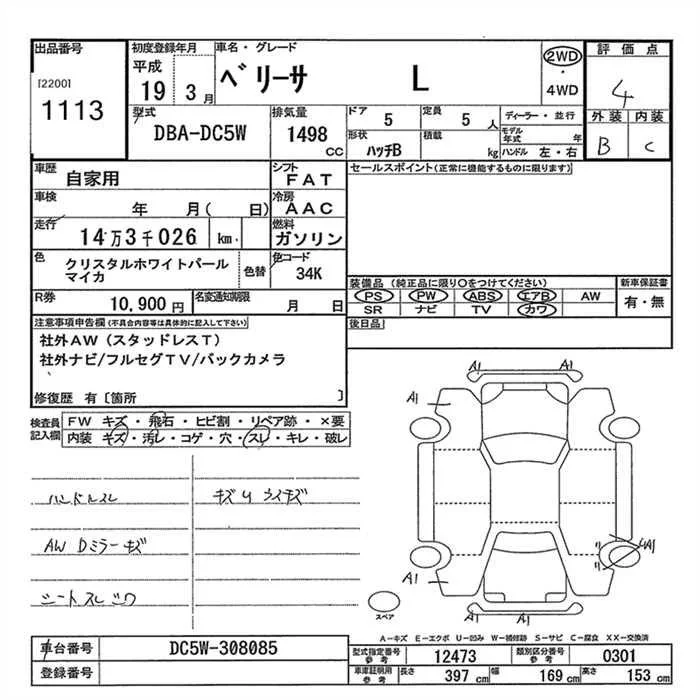 出品番号
[2200]
1113
初度登録年月
平成
19 3月
車名・グレード
ベリーサ L
2WD
・
4WD
評価点
4
外装 内装
B C
型式
DBA-DC5W
排気量
1498 CC
ドア
5
定員
5 人
形状
ハッチB
積載
kg
ディーラー・並行
モデル年式 年
ハンドル 左・右
車歴
自家用
シフト
FAT
車検
年 月( 日)
冷房
AAC
走行
14万3千026 km
燃料
ガソリン
色
クリスタルホワイトパール
マイカ
色替
色コード
34K
R券
10,900円
名変通知期限
月 日
セールスポイント(正常に機能するものに限ります)
装備品 (純正品に限り○をつけてください)
PS PW ABS エアB AW
SR ナビ TV カワ
新車保証書
有・無
後日品
注意事項申告欄(不具合内容等は具体的に記入して下さい)
社外AW(スタッドレスT)
社外ナビ/フルセグTV/バックカメラ
修復歴 有〔箇所 〕
検査員
記入欄
FW キズ・飛石・ヒビ割・リペア跡・×要
内装 キズ・汚レ・コゲ・穴・スレ・キレ・破レ
ハンドルスレ
キズU ウスキズ
AW Dミラーキズ
シートスレシワ
A1 A1
A1
A1
A1
A1 A1
スペア
A-キズ E-エクボ U-凹み W-補修跡 S-サビ C-腐食 XX-交換済
車台番号
DC5W-308085
登録番号
型式指定番号
参考
12473
類別区分番号
参考
0301
車庫証明用
参考
長さ 397 cm
幅 169 cm
高さ 153 cm